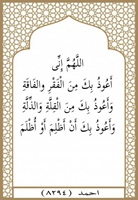 اللَّهُمَّ إِنِّي
أَعُوذُ بِكَ مِنَ الْفَقْرِ وَالفَاقَةِ
وَأَعُوذُ بِكَ مِنَ الْقِلَّةِ وَالذِّلَّةِ
وَأَعُوذُ بِكَ أَنْ أَظْلِمَ أَوْ أُظْلَمَ
احمد (٨٢٩٤)